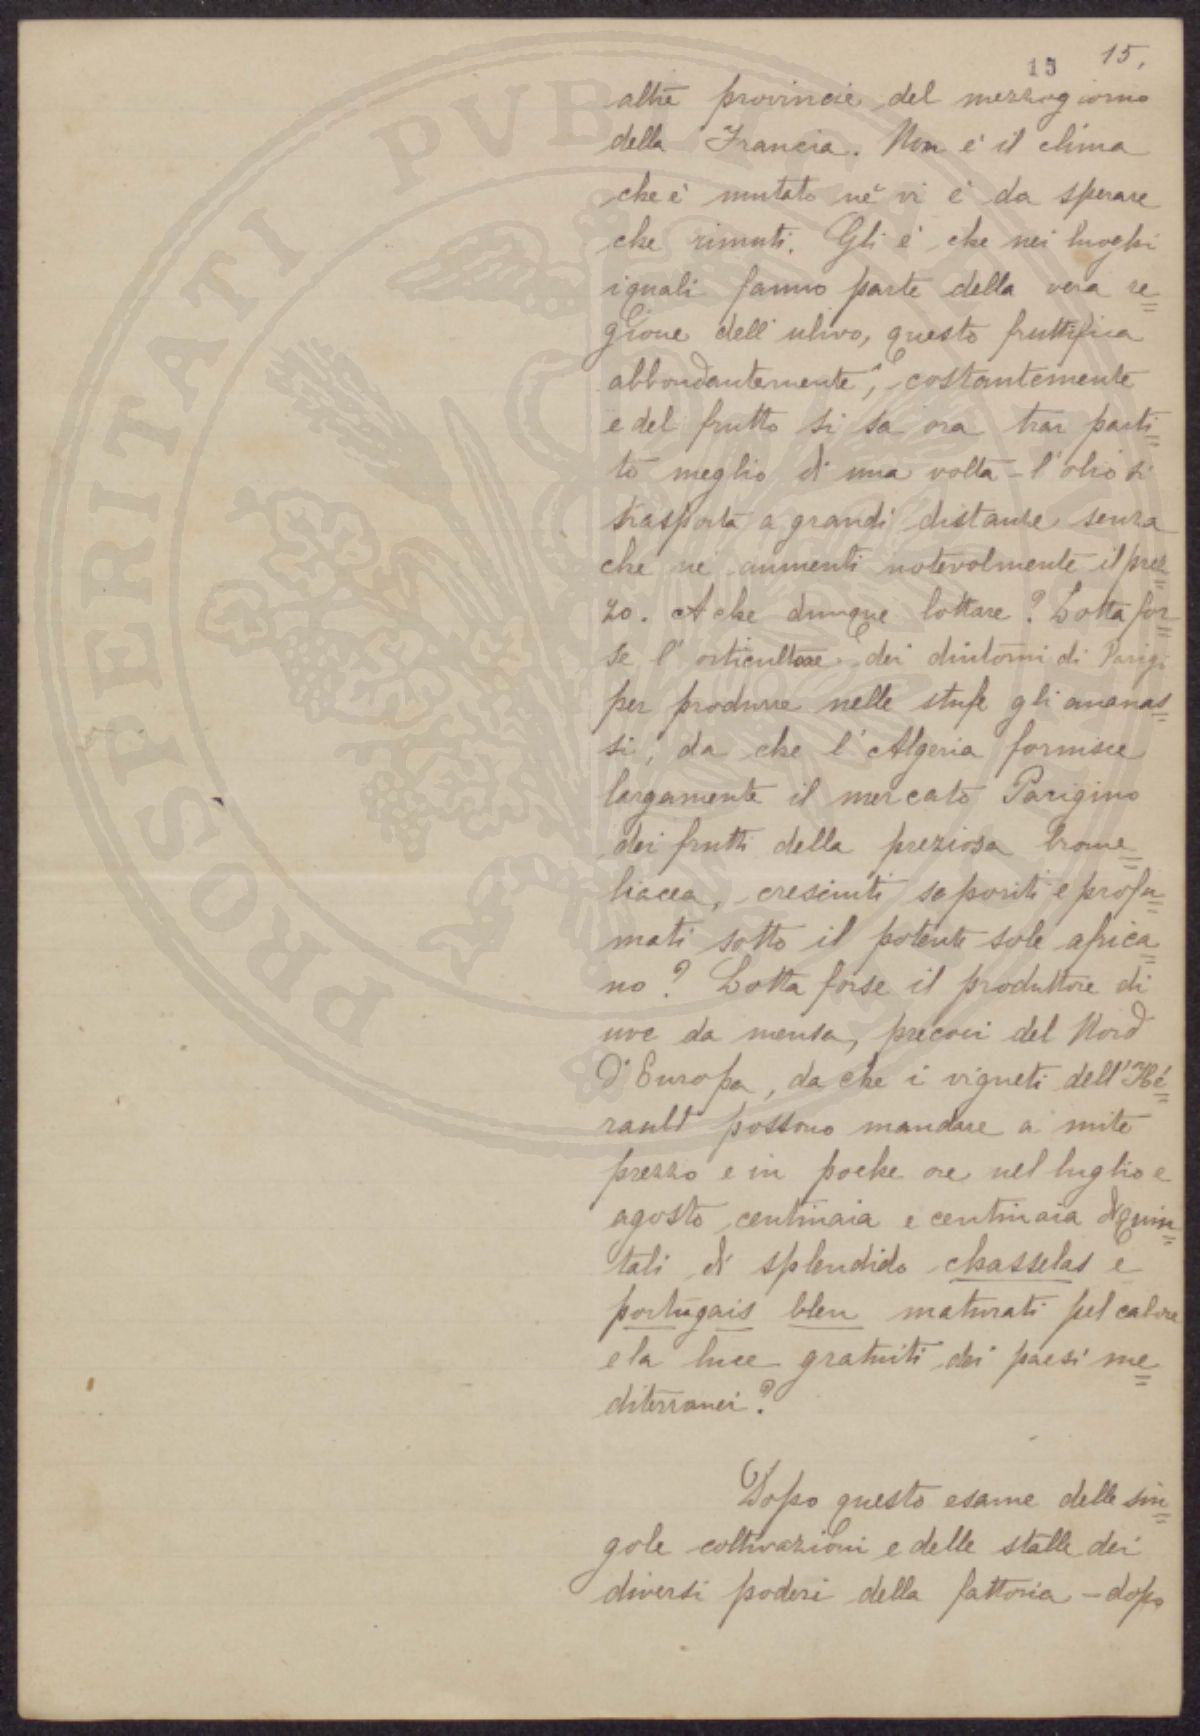 15 15.
altre provincie del mezzogiorno
della Francia. Non è il clima
che è mutato nè vi è da sperare
che rimuti. Gli è che nei luoghi
i quali fanno parte della vera re=
gione dell'ulivo, questo fruttifica
abbondantemente, costantemente
e del frutto si sa ora trar parti=
to meglio di una volta - l'olio si
trasporta a grandi distanze senza
che ne aumenti notevolmente il prez=
zo. A che dunque lottare? Lotta for=
se l'orticultore dei dintorni di Parigi
per produrre nelle stufe gli ananas=
si, da che l'Algeria fornisce
largamente il mercato Parigino
dei frutti della preziosa brome=
liacea, cresciuti saporiti e profu=
mati sotto il potente sole africa=
no? Lotta forse il produttore di
uve da mensa, precoci del Nord
d'Europa, da che i vigneti dell'Hé=
rauld possono mandare a mite
prezzo e in poche ore nel luglio e
agosto centinaia e centinaia di quin=
tali di splendido chasselas e
portugais bleu maturati pel calore
e la luce gratuiti dei paesi me=
diterranei?
Dopo questo esame delle sin=
gole coltivazioni e delle stalle dei
diversi poderi della fattoria - dopo
PROSPERITATI PVBLICAE